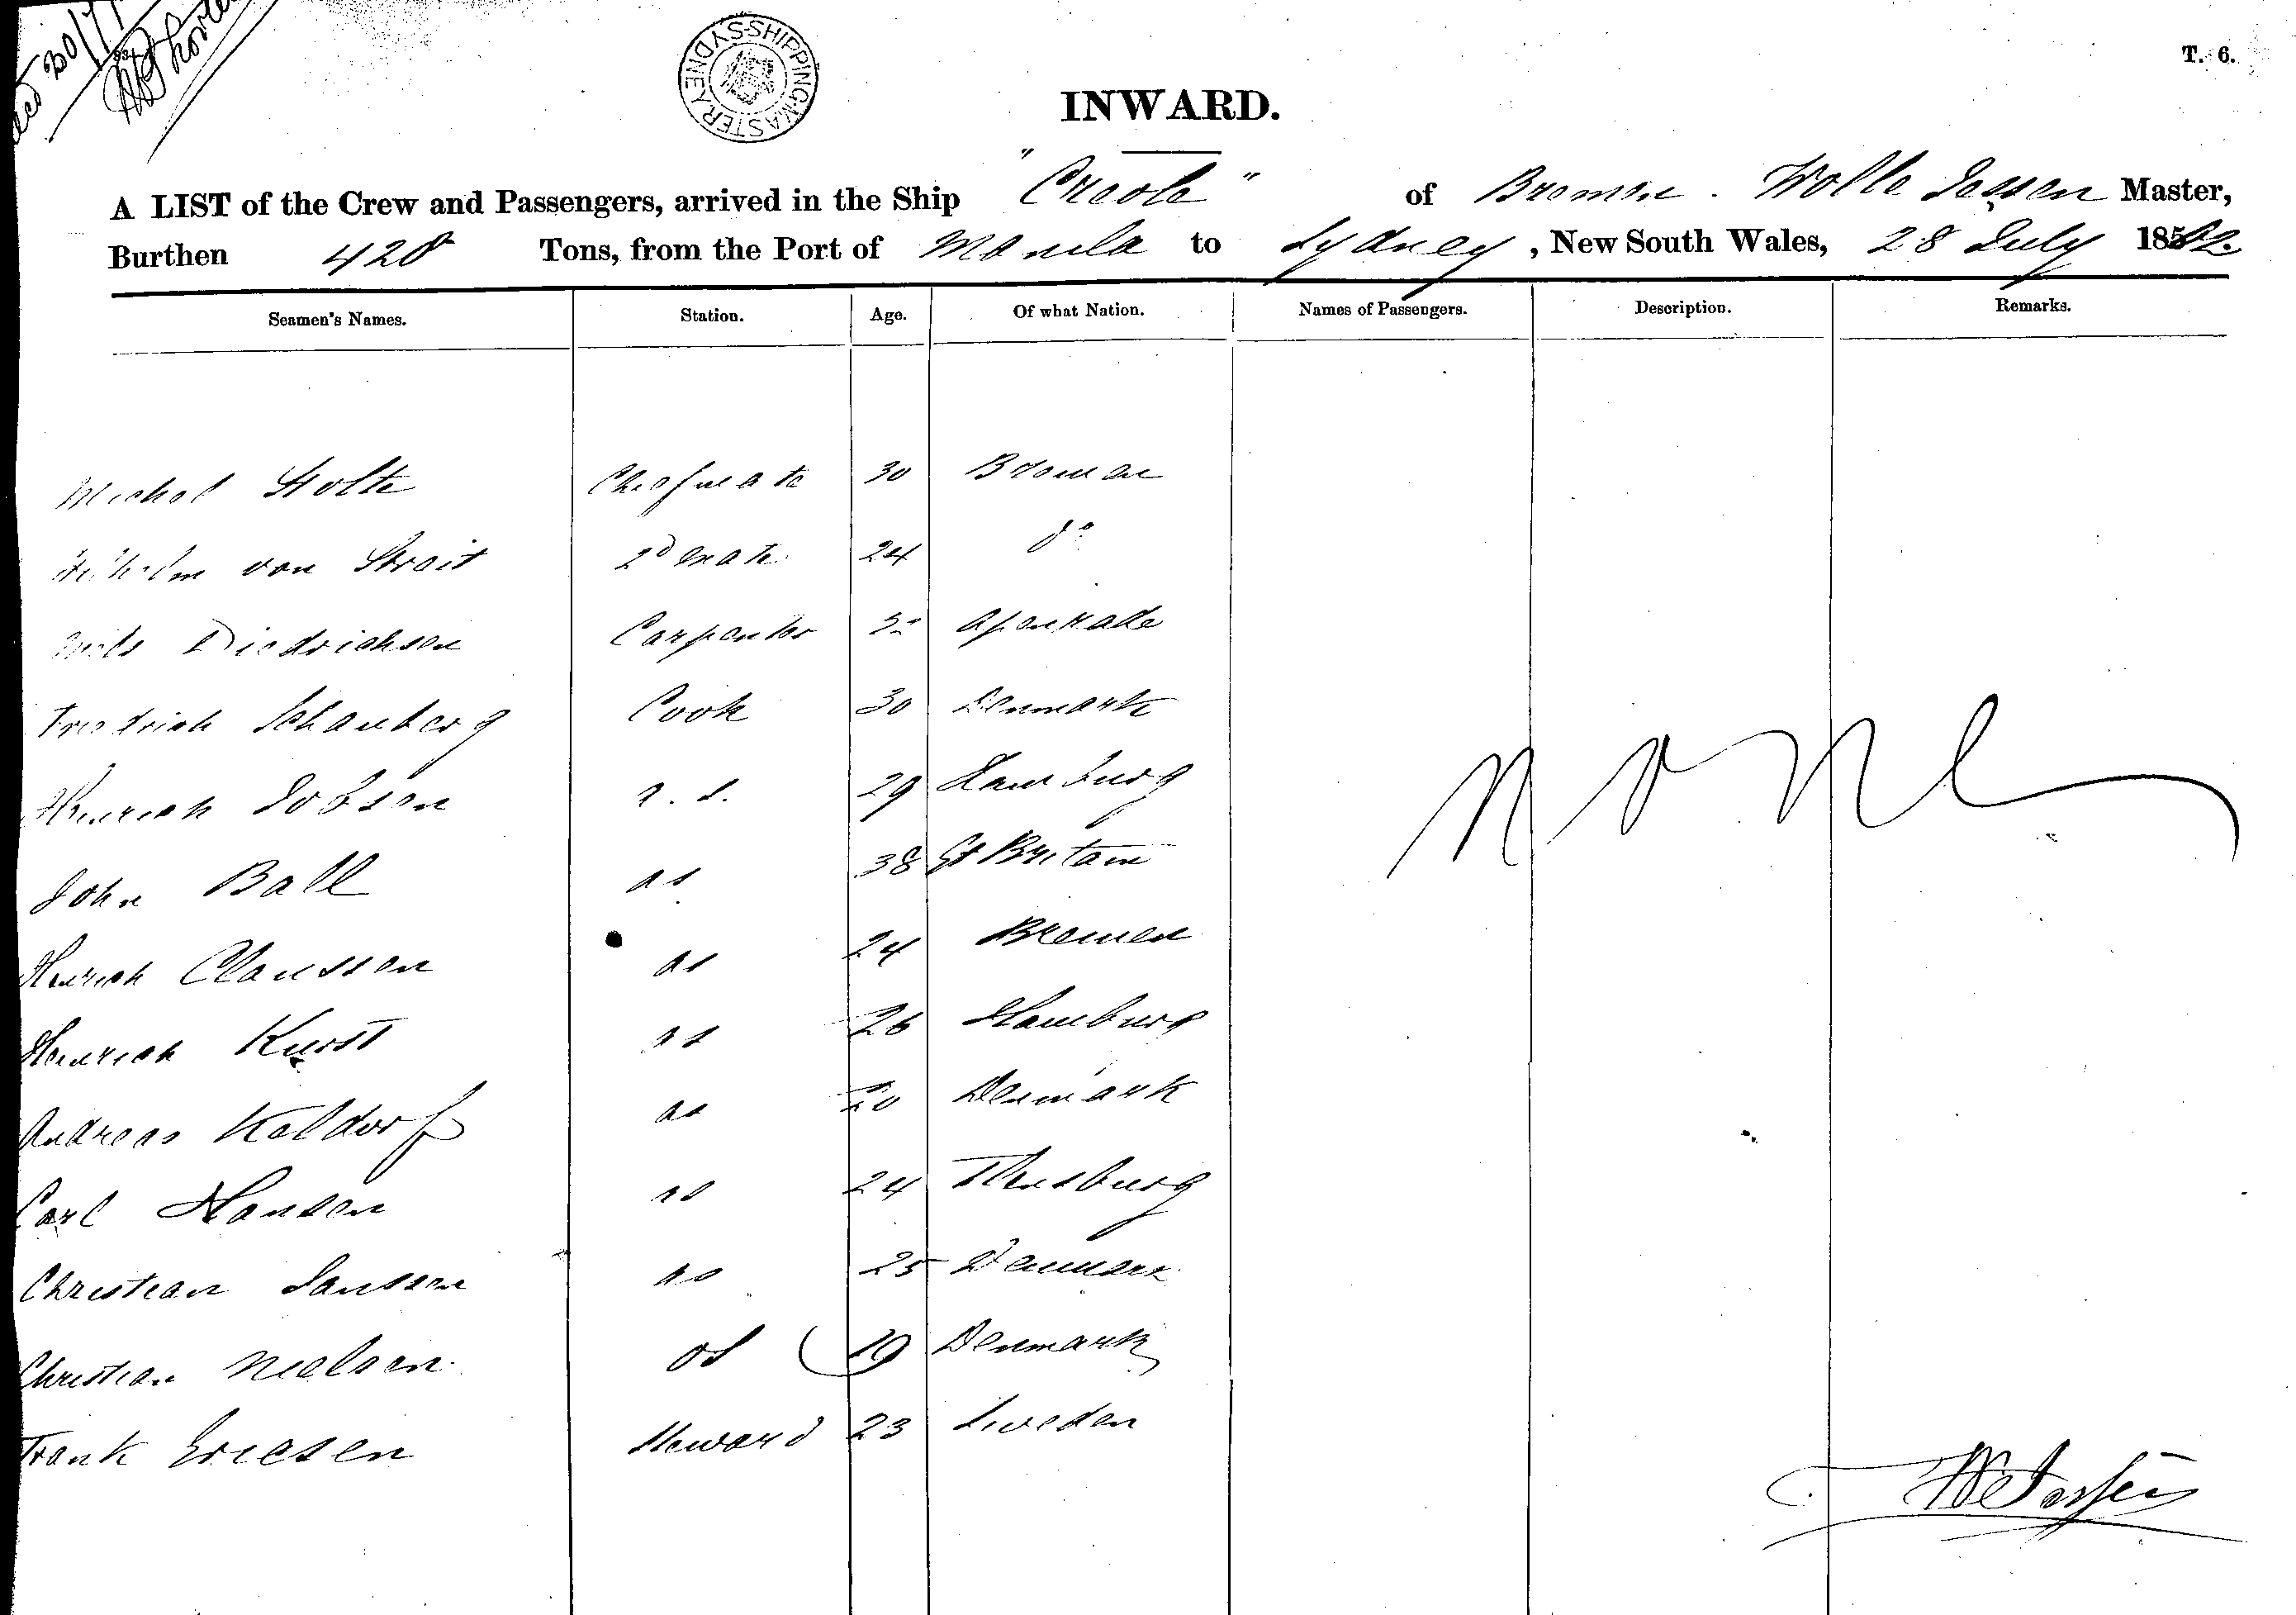 T. 6.
SHIPPING MASTER SYDNEY
INWARD.
A LIST of the Crew and Passengers, arrived in the Ship "Creole" of Bremen. Wolle Jessen Master,
Burthen 420 Tons, from the Port of Manila to Sydney, New South Wales, 28 July 1862.
Seamen's Names. Station. Age. Of what Nation. Names of Passengers. Description. Remarks.
Michel Stolte Chief mate 30 Bremen
Wilhelm von Strait 2d mate 24 do
Nils Diedrichsen Carpenter Apenrade
Friedrich Schauberg Cook 30 Denmark
Heinrich Jobsen a.s. 29 Hamburg
John Ball as 38 Gt Britain
Heinrich Claussen as 24 Bremen
Heinrich Kurst as 26 Hamburg
Andreas Keldorf as 20 Denmark
Carl Hansen as 24 Flensburg
Christian Janssen as 25 Denmark
Christian Nielsen os 19 Denmark
Frank Ericsen Steward 23 Sweden
None